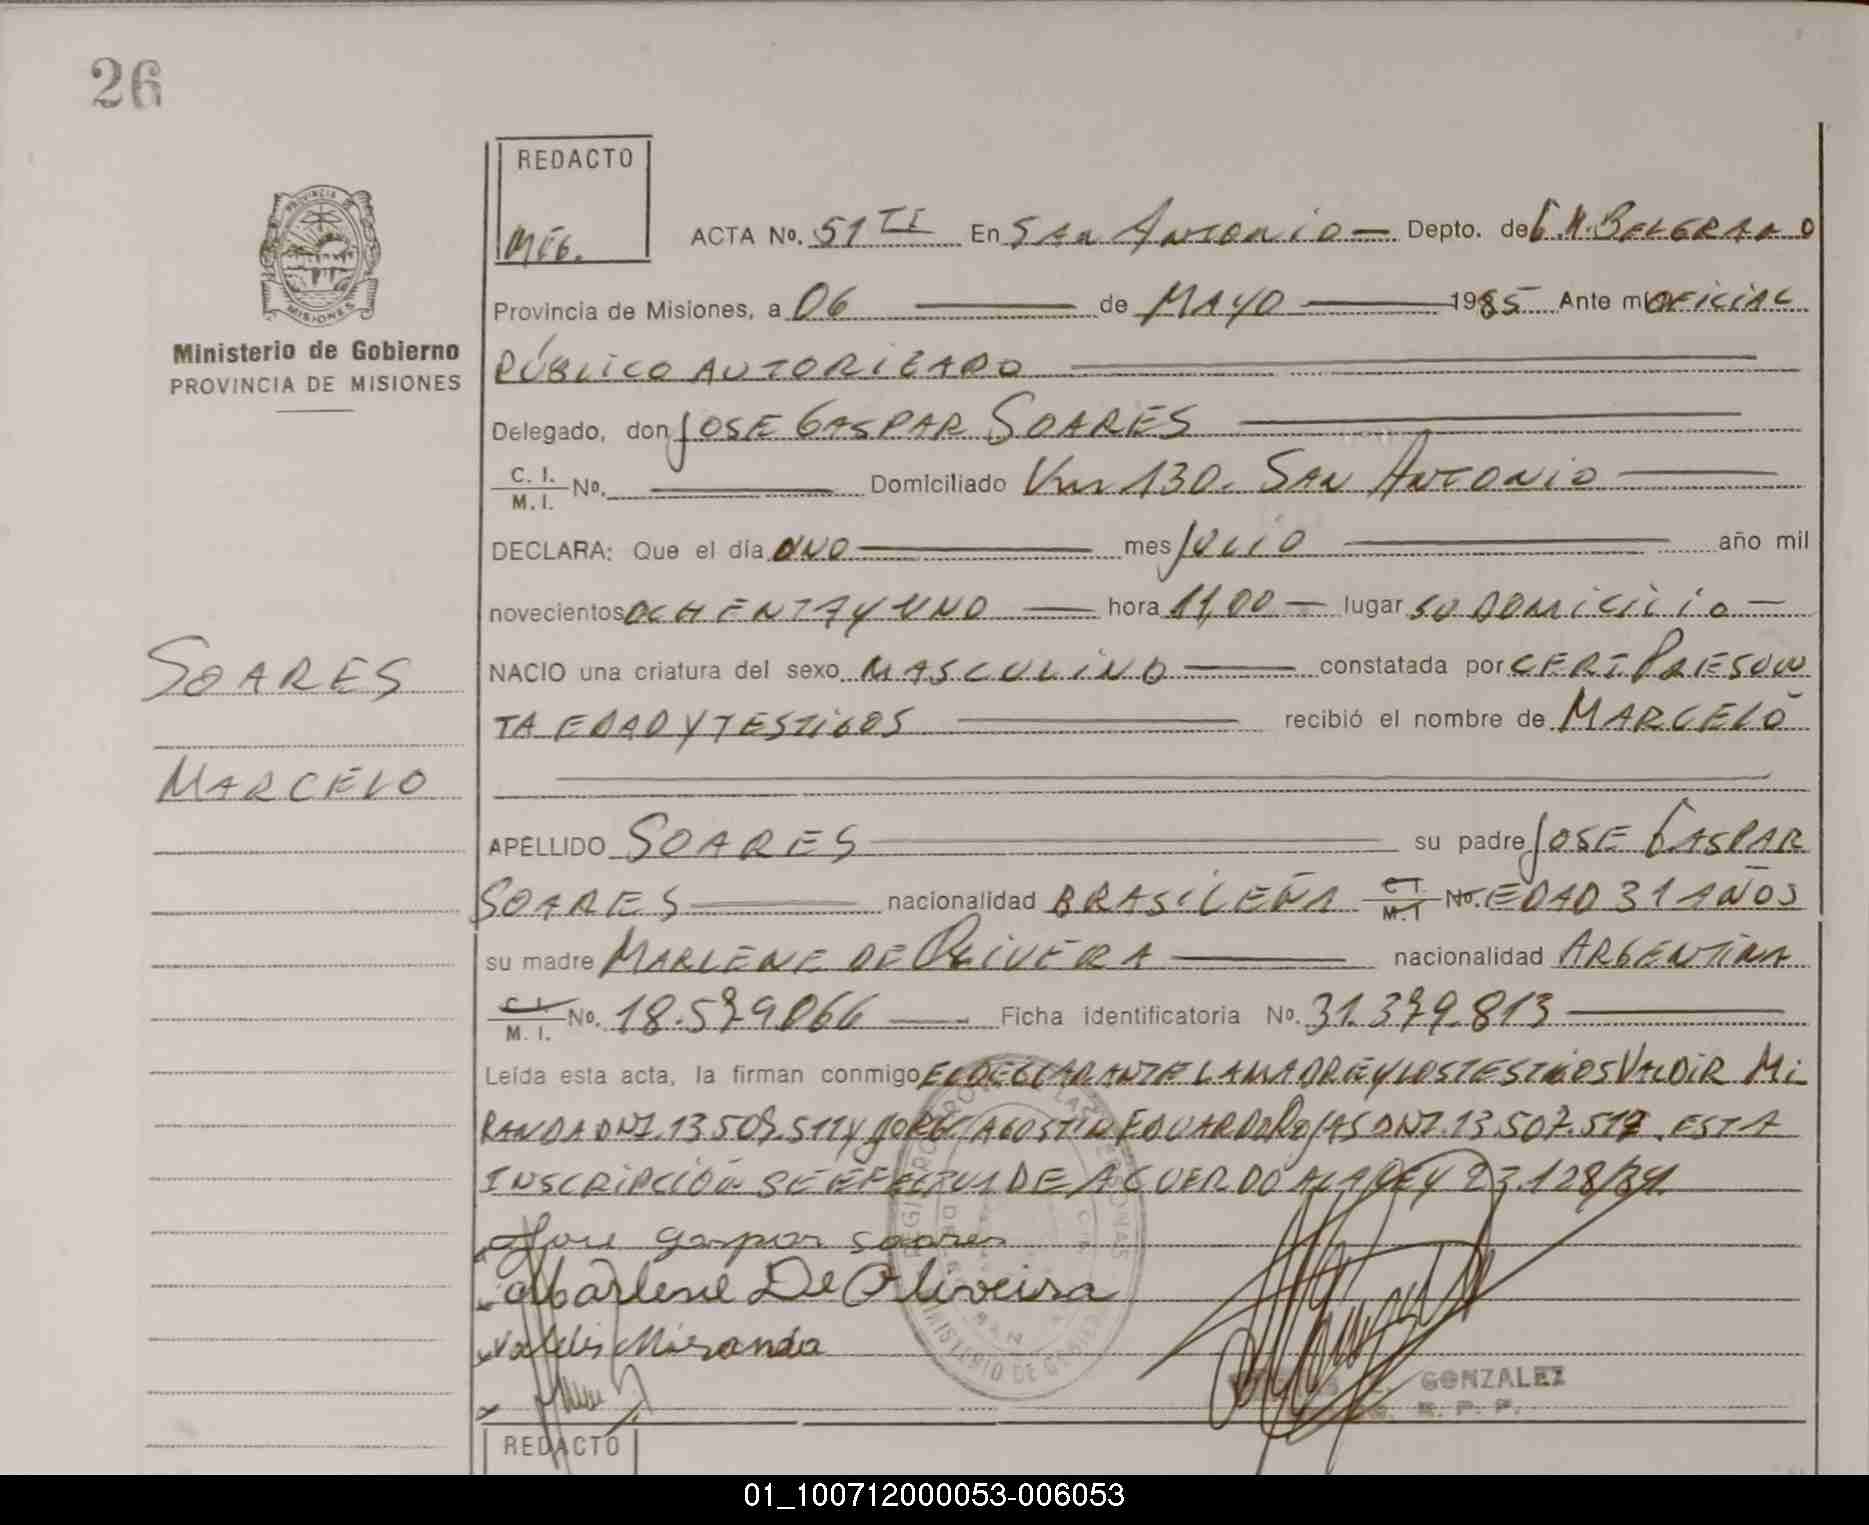 26
REDACTO
MEG.
PROVINCIA
MISIONES
Ministerio de Gobierno
PROVINCIA DE MISIONES
ACTA No. 51 TI En SAN ANTONIO — Depto. de G.M. BELGRANO
Provincia de Misiones, a 06 de MAYO 1985 Ante mi OFICIAL
PÚBLICO AUTORIZADO
Delegado, don JOSE GASPAR SOARES
C. I. / M. I. No. Domiciliado Km 130. SAN ANTONIO
DECLARA: Que el día UNO mes JULIO año mil
novecientos OCHENTA Y UNO hora 11,00 lugar SU DOMICILIO
NACIO una criatura del sexo MASCULINO constatada por CERT. PRESUN
TA EDAD Y TESTIGOS recibió el nombre de MARCELO
SOARES
MARCELO
APELLIDO SOARES su padre JOSE GASPAR
SOARES nacionalidad BRASILEÑA C.I. / M.I No. EDAD 31 AÑOS
su madre MARLENE DE OLIVERA nacionalidad ARGENTINA
C.I. / M. I. No. 18.579.066 Ficha identificatoria No. 31.379.813
Leída esta acta, la firman conmigo EL DECLARANTE LA MADRE Y LOS TESTIGOS VALDIR MI
RANDA DNI. 13.507.511 Y JORGE AGOSTIN EDUARDO ROJAS DNI. 13.507.517 . ESTA
INSCRIPCIÓN SE EFECTUA DE ACUERDO A LA LEY 23.128/84.
Jose gaspar soares
Marlene De Oliveira
Valdir Miranda
MINISTERIO DE GOBIERNO
GONZALEZ
R. P. P.
REDACTO
01_100712000053-006053